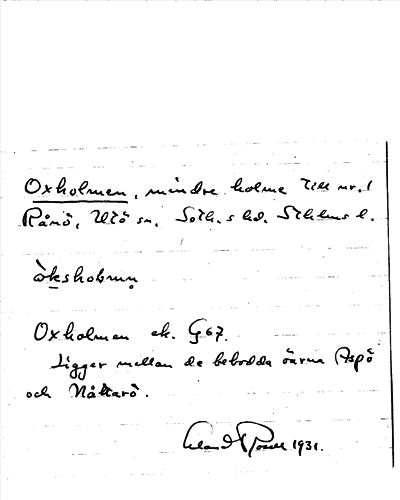 Oxholmen, mindre holme till nr. 1
Rånö, Utö sn. Soth.s hd. Sthlms l.
òksholmun
Oxholmen ek. G67.
Ligger mellan de bebodda öarna Aspö
och Nåttarö.
1931.